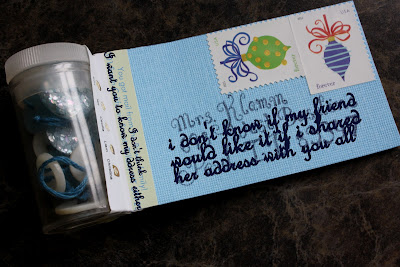 USA
forever
forever
Mrs. Klamm
i don't know if my friend
would like it if i shared
her address with you all
I don't think
I want you to know my adress either